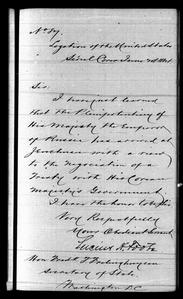 No. 89.
Legation of the United States
Seoul Corea June 24 1884
Sir.
I have just learned
that the Plenipotentiary of
His Majesty the Emperor
of Russia has arrived at
Jenchuan with a view
to the negotiation of a
Treaty with His Corean
Majesty's Government.
I have the honor to be Sir
Very Respectfully
Your Obedient Servant
Lucius H. Foote
Hon. Fredk. T. Frelinghuysen
Secretary of State
Washington D.C.